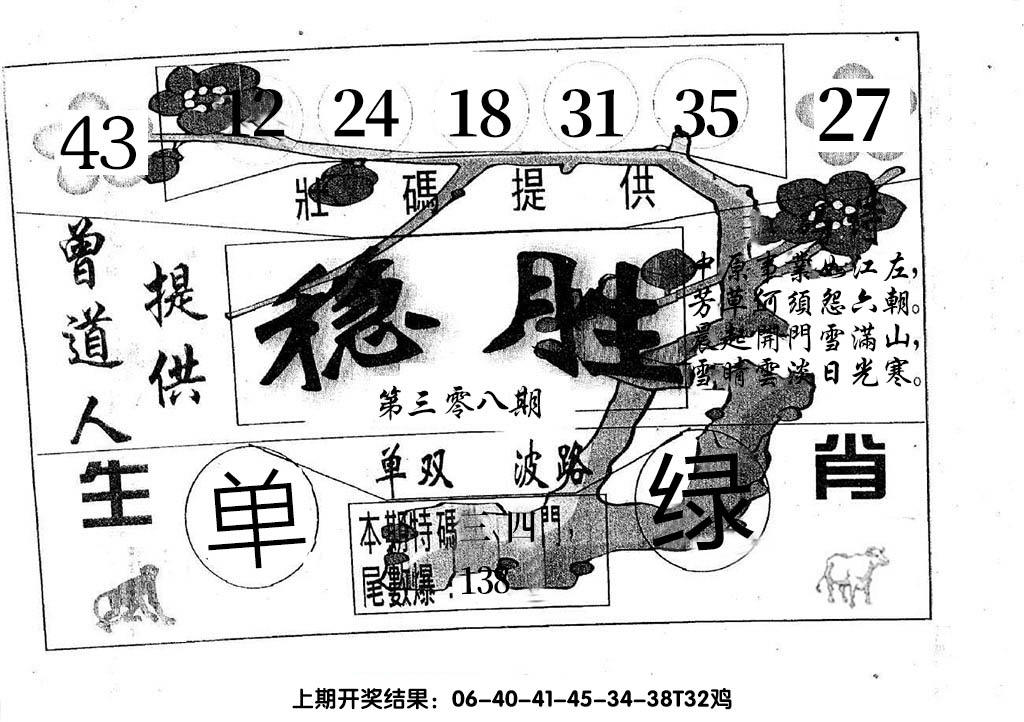 43 12 24 18 31 35 27
壯碼提供
曾道人
提供
稳胜
第三零八期
中原事業如江左，
芳草何須怨六朝。
晨起開門雪滿山，
雪晴雲淡日光寒。
生肖
单双 波路
单 绿
本期特碼三、四門，
尾數爆：138
上期开奖结果：06-40-41-45-34-38T32鸡